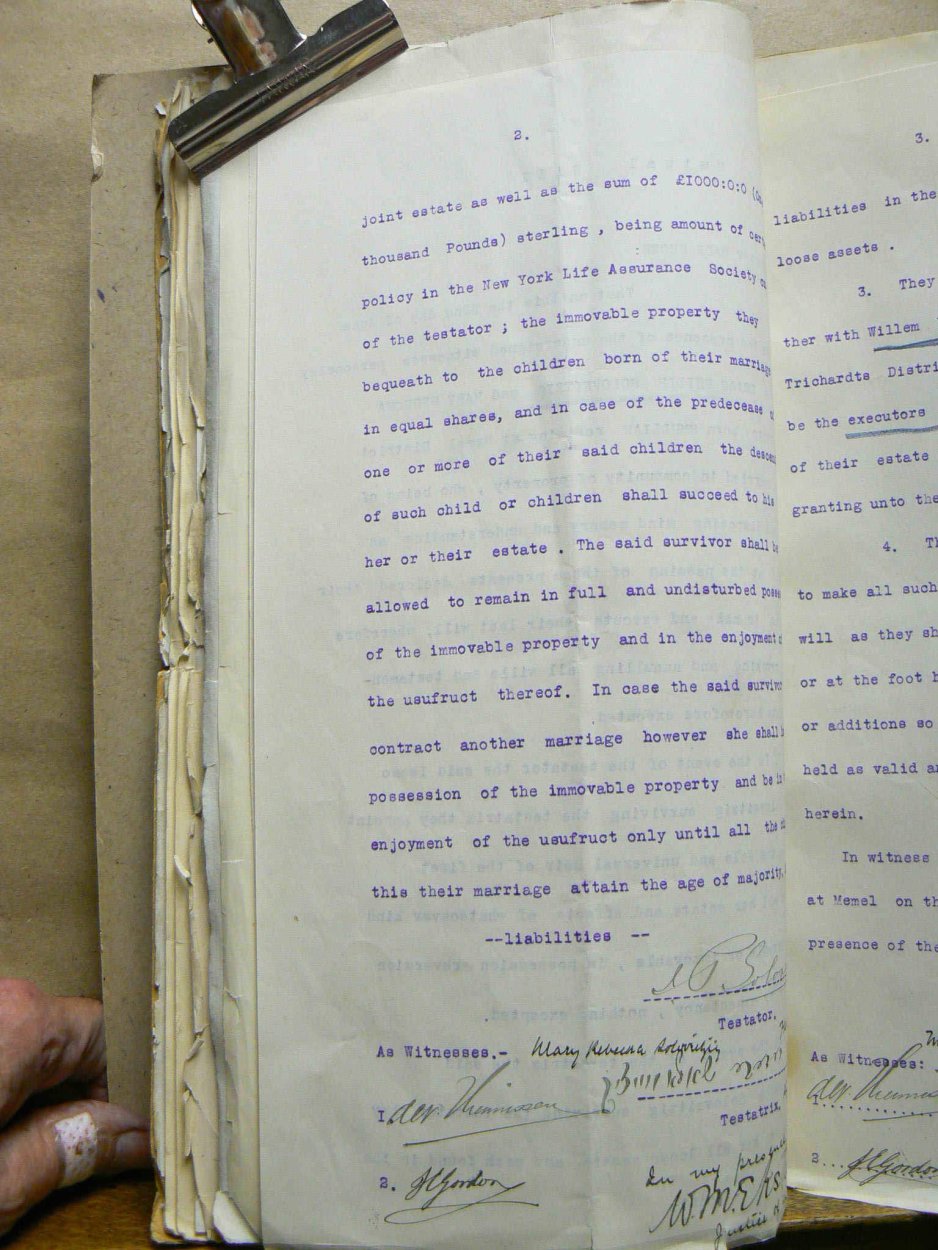 2.
joint estate as well as the sum of £1000:0:0 (
thousand Pounds) sterling , being amount of
policy in the New York Life Assurance Society
of the testator ; the immovable property they
bequeath to the children born of their marriag
in equal shares, and in case of the predecease
one or more of their said children the desce
of such child or children shall succeed to his
her or their estate . The said survivor shall be
allowed to remain in full and undisturbed posse
of the immovable property and in the enjoyment
the usufruct thereof. In case the said survivo
contract another marriage however she shall
possession of the immovable property and be in
enjoyment of the usufruct only until all the
this their marriage attain the age of majority,
--liabilities --
Testator.
As Witnesses.- Mary Rebecca
Testatrix.
I.
2. Gordon
In my
W.M.
Justice
3.
liabilities in the
loose assets .
3. They
ther with Willem
Trichardts Distri
be the executors
of their estate
granting unto the
4. Th
to make all such
will as they sh
or at the foot h
or additions so
held as valid an
herein.
In witness
at Memel on th
presence of the
As Witnesses:
1.
2... Gordon